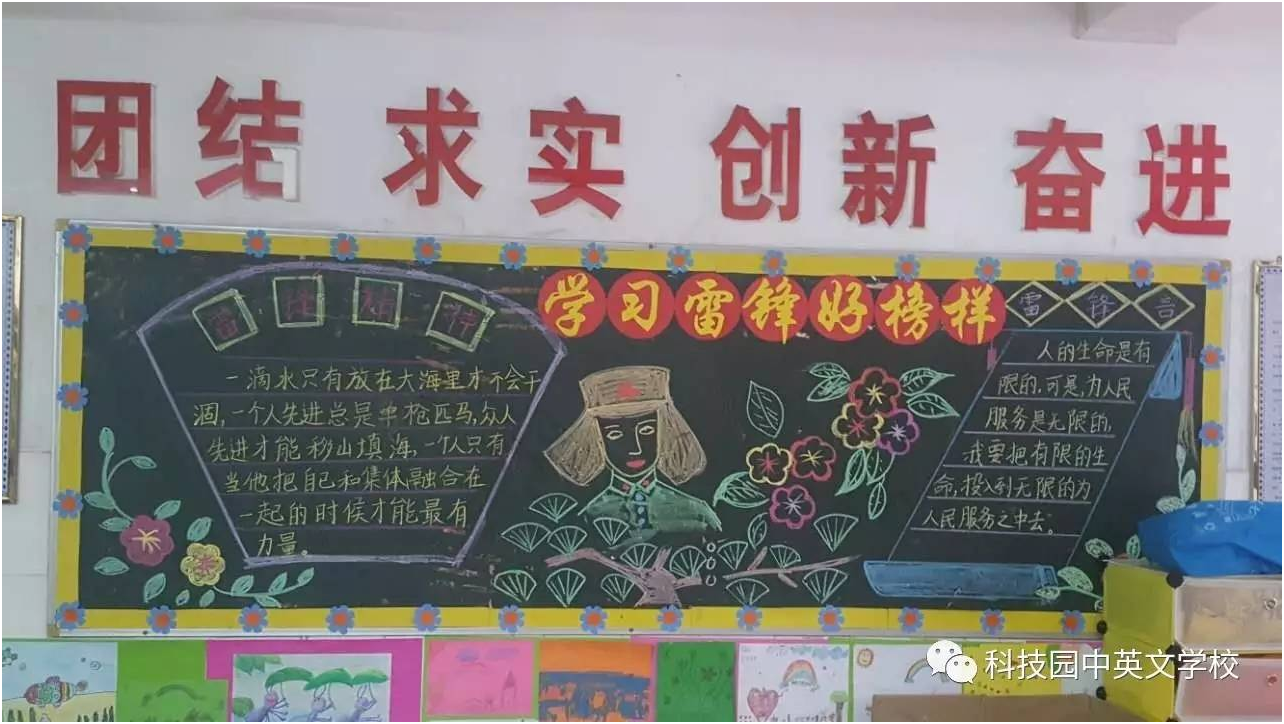 团结 求实 创新 奋进
学习雷锋好榜样
雷锋精神
一滴水只有放在大海里才不会干
涸,一个人先进总是单枪匹马,众人
先进才能移山填海,一个人只有
当他把自己和集体融合在
一起的时候才能最有
力量。
雷锋言
人的生命是有
限的,可是,为人民
服务是无限的,
我要把有限的生
命,投入到无限的为
人民服务之中去。
科技园中英文学校